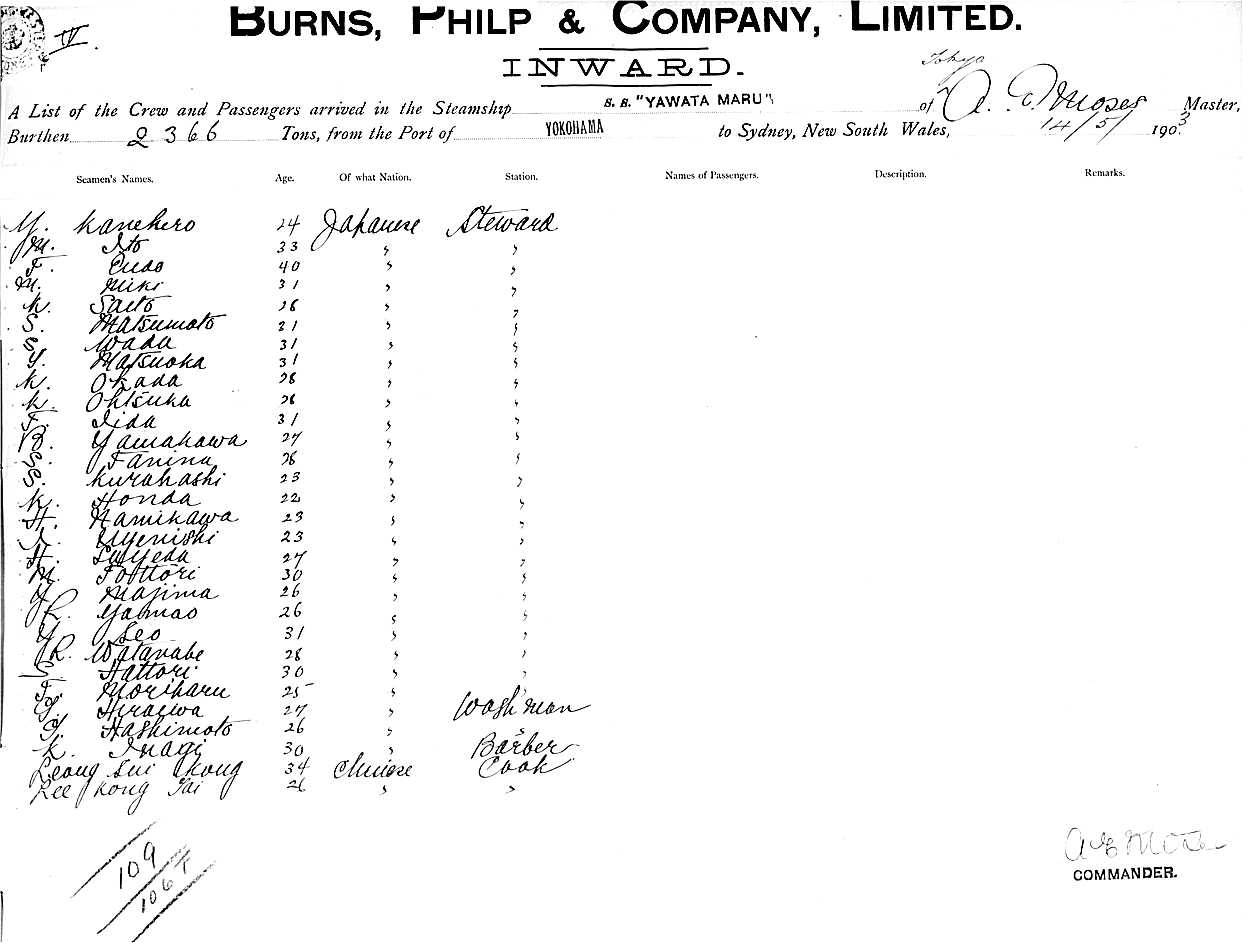 IV.
BURNS, PHILP & COMPANY, LIMITED.
INWARD.
Tokyo
A List of the Crew and Passengers arrived in the Steamship S. S. "YAWATA MARU" of A. E. Moses Master,
Burthen 2366 Tons, from the Port of YOKOHAMA to Sydney, New South Wales, 14/5/ 1903
Seamen's Names. Age. Of what Nation. Station. Names of Passengers. Description. Remarks.
Y. Kanehiro 24 Japanese Steward
M. Ito 33 " "
F. Endo 40 " "
M. Miki 31 " "
K. Saito 28 " "
S. Matsumoto 21 " "
S. Wada 31 " "
Y. Matsuoka 31 " "
K. Okada 28 " "
K. Ohtsuka 28 " "
F. Iida 31 " "
B. Yamakawa 27 " "
S. Tanina 28 " "
S. Kurahashi 23 " "
K. Honda 22 " "
H. Namikawa 23 " "
Uyenishi 23 " "
H. 27 " "
M. Tottori 30 " "
Y. Majima 26 " "
R. Yamao 26 " "
Y. Seo 31 " "
R. Watanabe 28 " "
S. Hattori 30 " "
F. Moriharu 25 " "
G. Hiraiwa 27 " Wash man
Y. Hashimoto 26 " "
K. Inagi 30 " Barber
Leong Sui Kong 34 Chinese Cook
Lee Kong Tai 26 " "
109
106 T
A E Moses
COMMANDER.